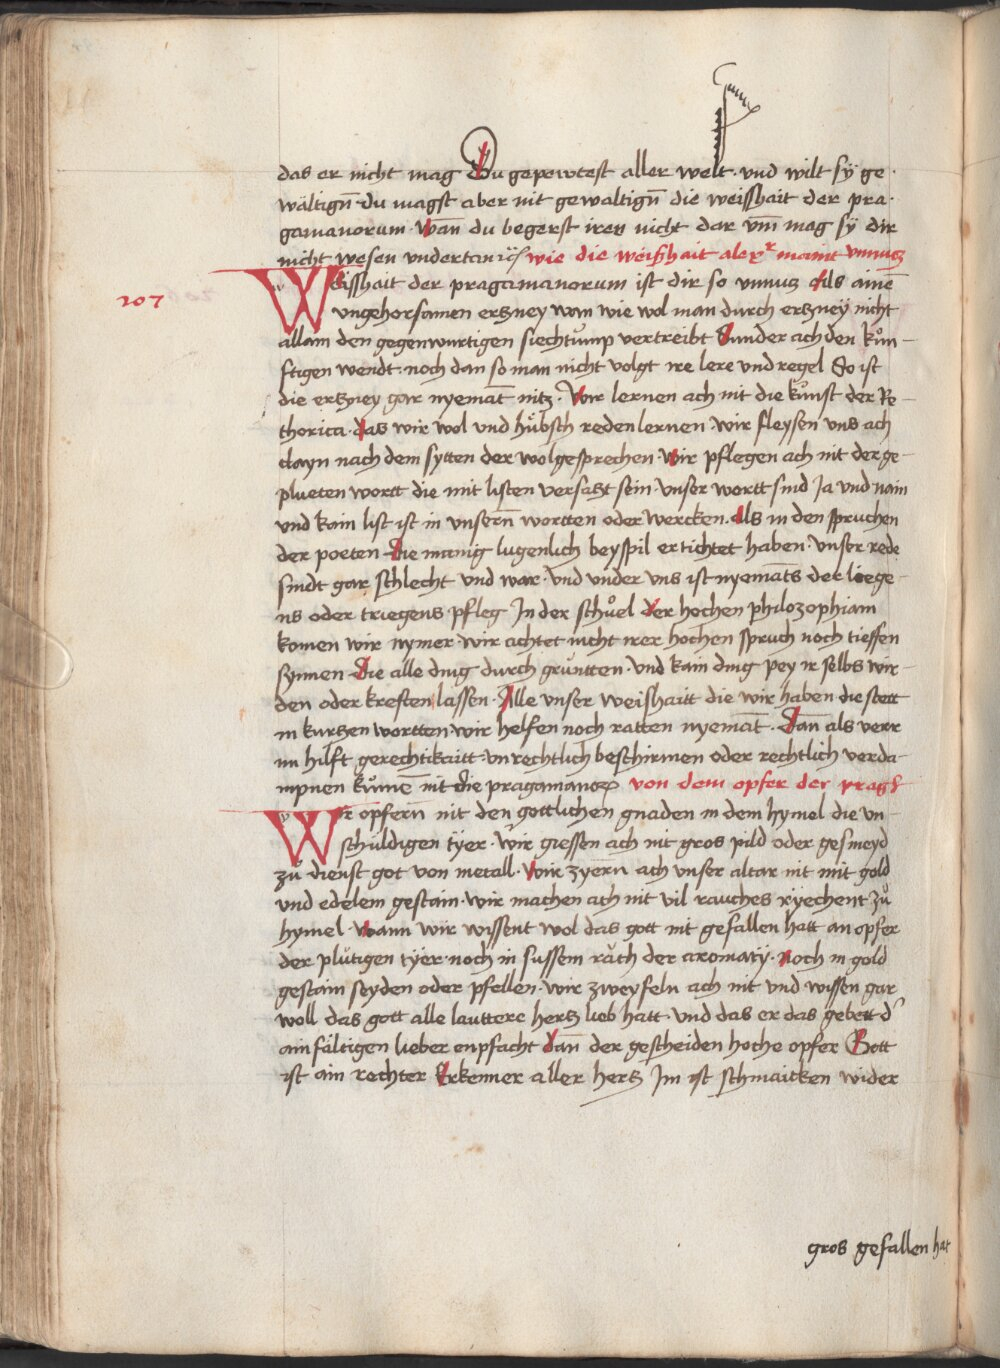 das er nicht mag Du gepewtest aller welt · und wilt sÿ ge ·
wältign̄ · du magst aber nit gewaltign̄ die weisshait der pra ·
gamanorum · Wan̄ du begerst irer nicht dar vm̄ mag sÿ dir
nicht wesen undertan ⁊c̃ wie die weißhait alexr maint vnnucz
107
Weisshait der pragamanorum ist dir so vnnucz als ainē
ungehorsamen erczney wan wie wol man durch erczneÿ nicht
allain den gegenwurtigen siechtůmp vertreibt Sunder ach den kůn –
ftigen wendt · noch dan so man nicht volgt ire lere und regel So ist
die erczney gar nyemāt nitz · Wir lernen ach nit die kůnst der Re –
thorica · das wir wol und hůbsch reden lernen · wir fleyssen uns ach
clayn nach dem sytten der wolgesprechen · wir pflegen ach nit der ge –
plueten wortt die mit listen verfaszt sein · unser wortt sind Ja und nain
und kain list ist in vnsern̄ wortten oder wercken · als in den spruchen
der poeten · die manig lugenlich beyspil ertichtet haben · unser rede
sindt gar schlecht und war · und under uns ist nyemāts der liege –
ns oder triegens pfleg In der schůel der hochen philozophiam
komen wir nymer · wir achtet nicht irer hochen spruch noch tieffen
synnen · Die alle ding durch grůntten · und kain ding pey ir selbs wir –
den oder kreften lassen · Alle unser weishaitt die wir haben die stett
in kurczen wortten · wir helfen noch ratten nyemāt · Dan̄ als verr
im hilft gerechtikaitt · unrechtlich beschirmen oder rechtlich verda –
mpnen kůnnē nit die pragamanoꝝ von dem opfer der prag̃
Wir opfern̄ nit den gottlichen gnaden in dem hymel die un –
schuldigen tÿer · wir giessen ach nit gros pild oder gesmeyd
zů dienst got von metall · wir zyern̄ ach unser altar nit mit gold
und edelem gestain · wir machen ach nit vil rauches rÿechent zů
hymel · wann wir wissent wol das gott nit gefallen hatt an opfer
der plůtigen tÿer · noch in sussem räch der aromatÿ · noch in gold
gestain seyden oder pfellen · wir zweyfeln ach nit und wissen gar
woll das gott alle lauttere hercz lieb hatt · und das er das gebett d'
ainfältigen lieber enpfacht dan̄ der gescheiden hoche opfer Gott
ist ain rechter Erkenner aller hercz Im ist schmaicken wider
gros gefallen hat